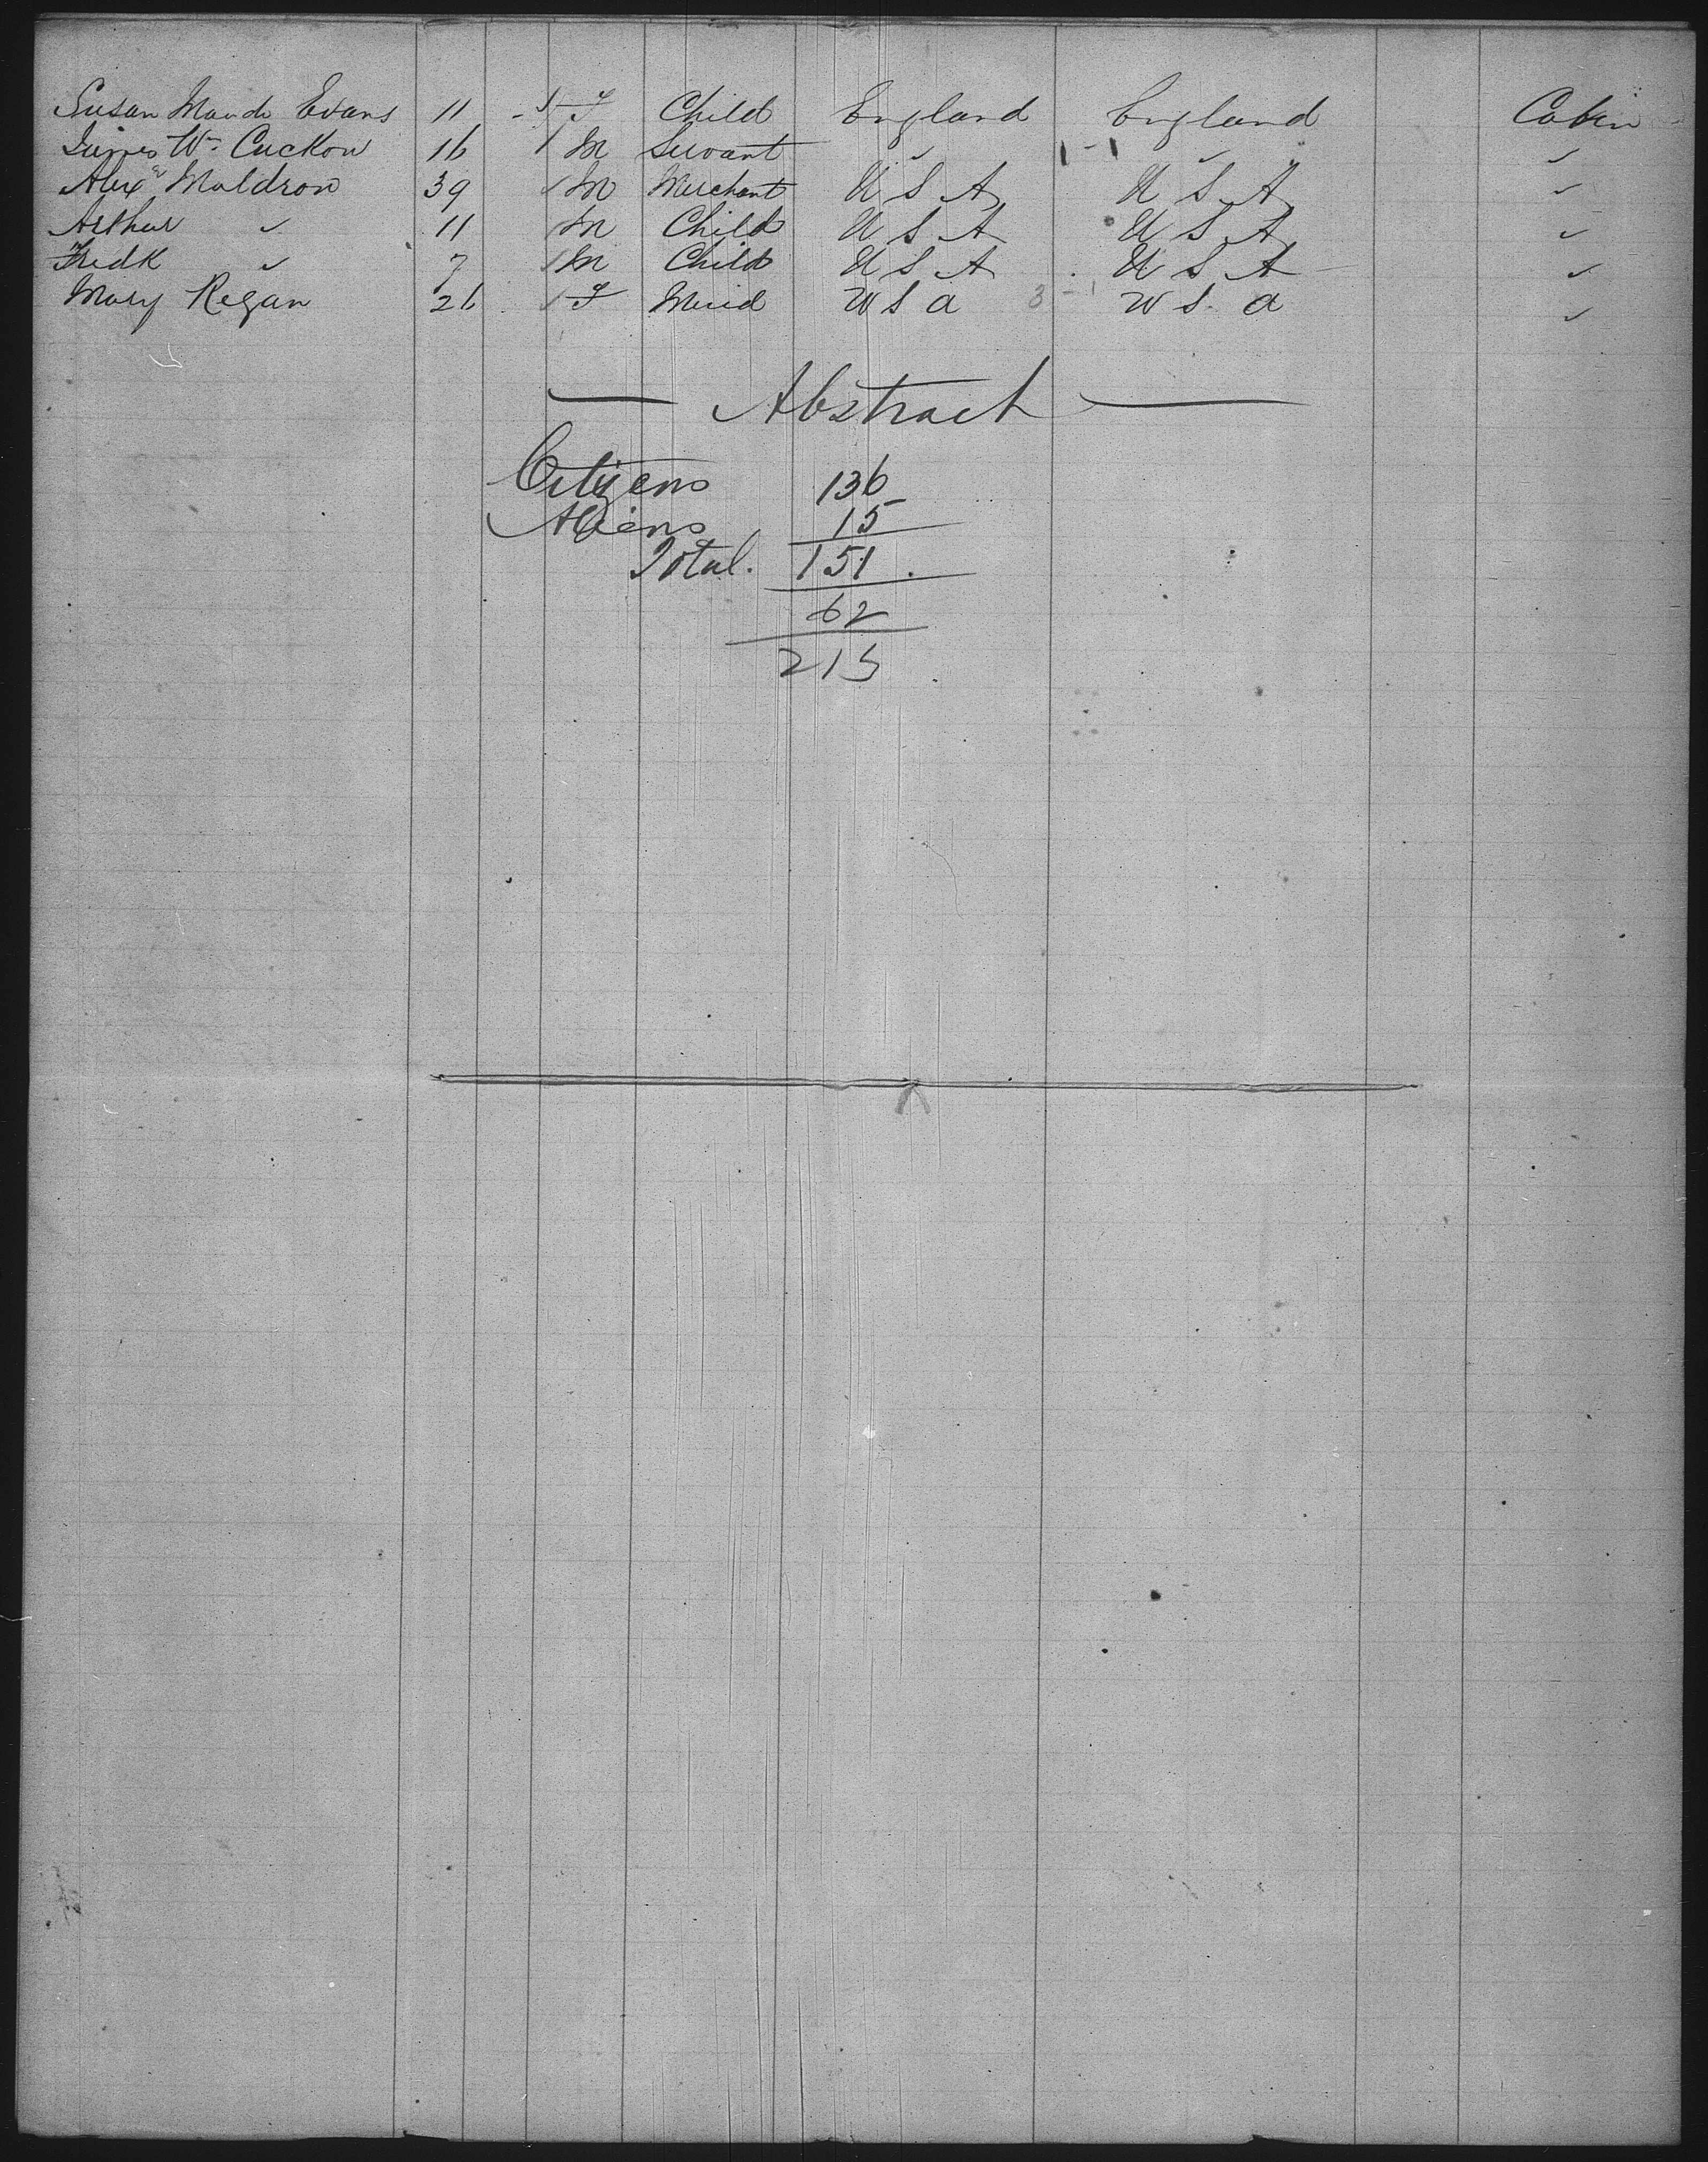 Susan Maude Evans 11 - 1 F Child England England Cabin
James Wm Cuckow 16 1 M Servant " 1-1 " "
Alexr Maldron 39 1 M Merchant U S A U S A "
Arthur " 11 1 M Child U S A U S A "
Fredk " 7 1 M Child U S A U S A "
Mary Regan 26 1 F Maid U S A 3-1 U S A "
Abstract
Citizens 136
Aliens 15
Total. 151.
62
213